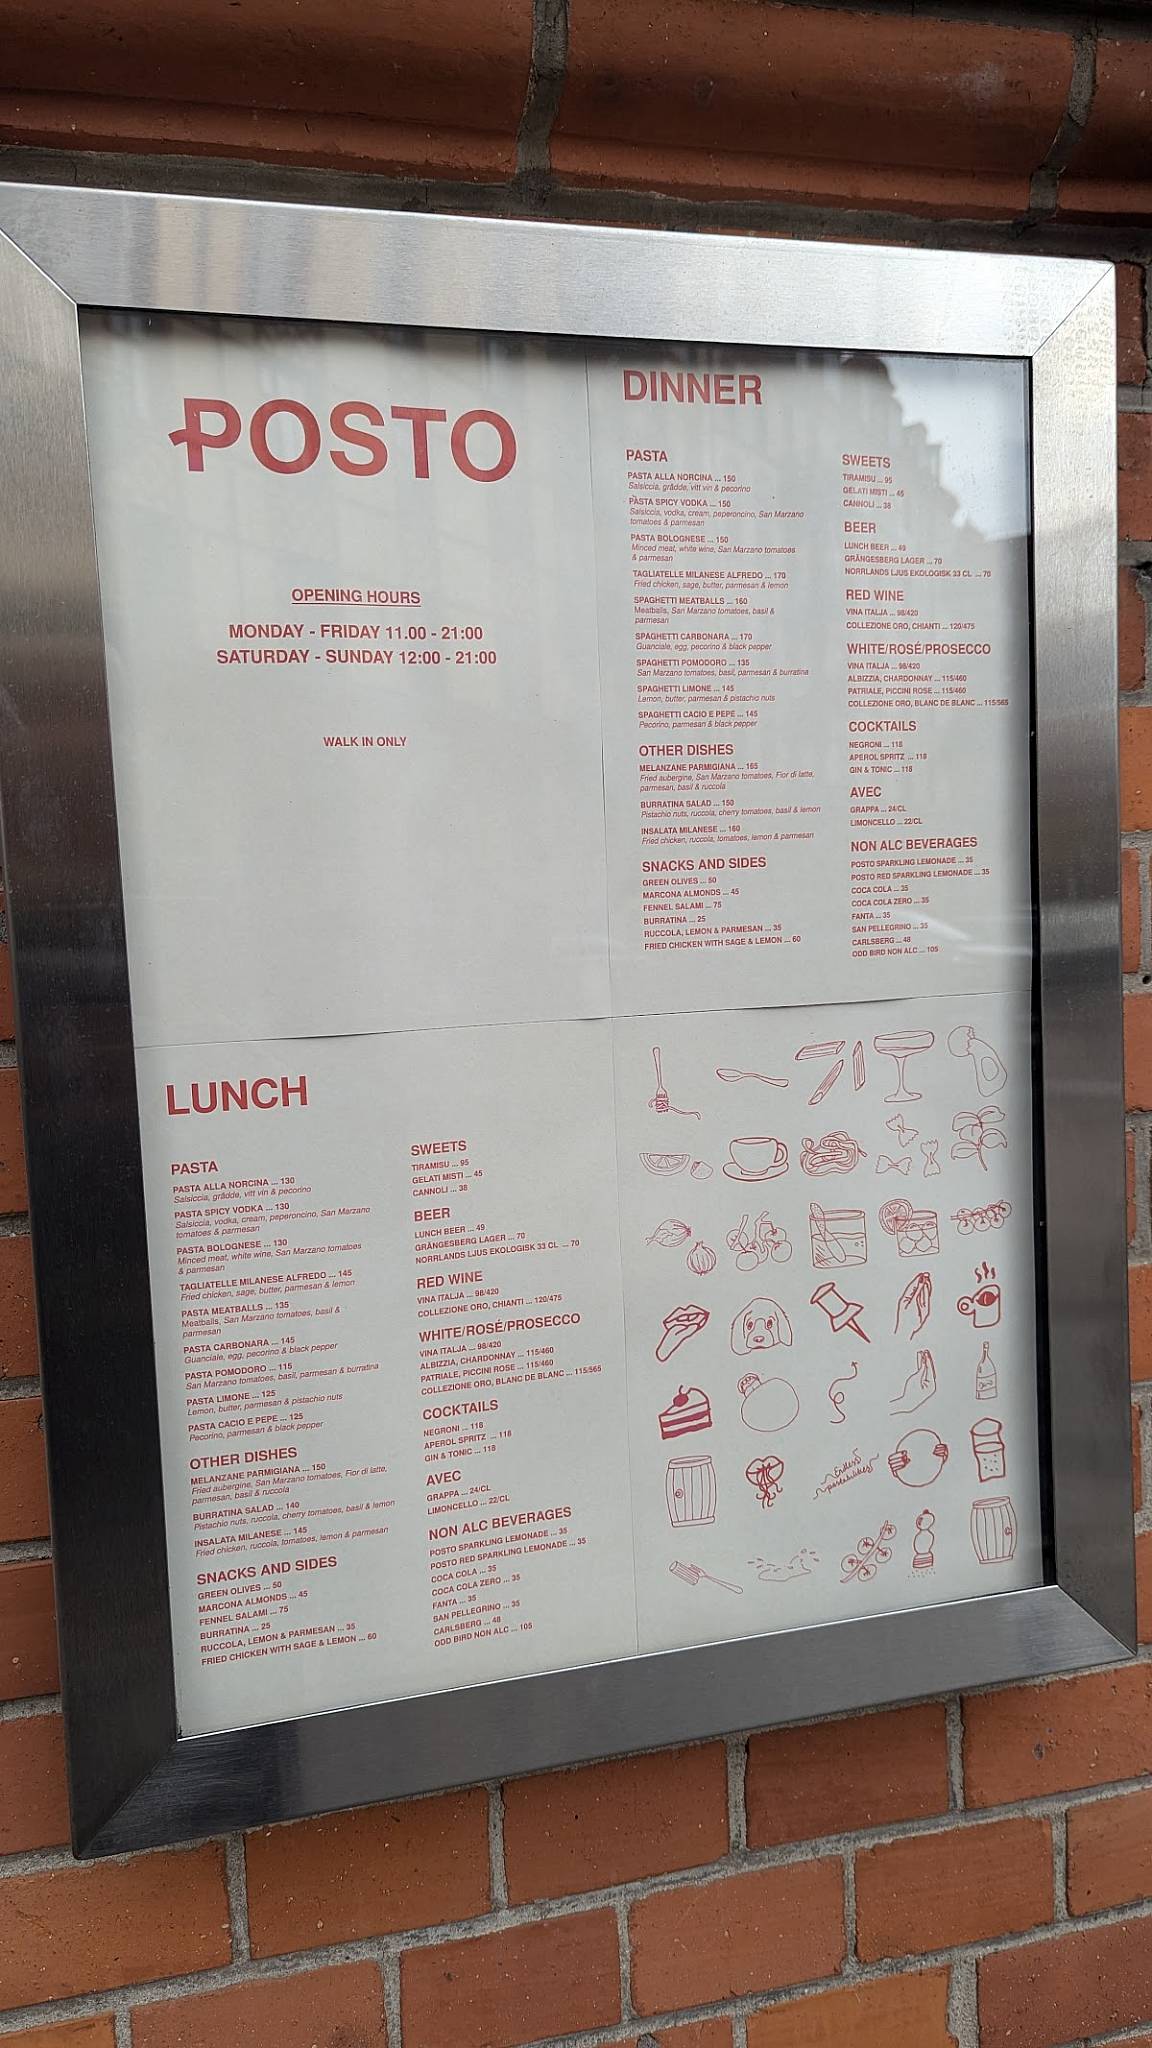 POSTO
OPENING HOURS
MONDAY - FRIDAY 11.00 - 21:00
SATURDAY - SUNDAY 12:00 - 21:00
WALK IN ONLY
DINNER
PASTA
PASTA ALLA NORCINA ... 150
Salsiccia, grädde, vitt vin & pecorino
PASTA SPICY VODKA ... 150
Salsiccia, vodka, cream, peperoncino, San Marzano
tomatoes & parmesan
PASTA BOLOGNESE ... 150
Minced meat, white wine, San Marzano tomatoes
& parmesan
TAGLIATELLE MILANESE ALFREDO ... 170
Fried chicken, sage, butter, parmesan & lemon
SPAGHETTI MEATBALLS ... 160
Meatballs, San Marzano tomatoes, basil &
parmesan
SPAGHETTI CARBONARA ... 170
Guanciale, egg, pecorino & black pepper
SPAGHETTI POMODORO ... 135
San Marzano tomatoes, basil, parmesan & burratina
SPAGHETTI LIMONE ... 145
Lemon, butter, parmesan & pistachio nuts
SPAGHETTI CACIO E PEPE ... 145
Pecorino, parmesan & black pepper
OTHER DISHES
MELANZANE PARMIGIANA ... 165
Fried aubergine, San Marzano tomatoes, Fior di latte,
parmesan, basil & ruccola
BURRATINA SALAD ... 150
Pistachio nuts, ruccola, cherry tomatoes, basil & lemon
INSALATA MILANESE ... 160
Fried chicken, ruccola, tomatoes, lemon & parmesan
SNACKS AND SIDES
GREEN OLIVES ... 50
MARCONA ALMONDS ... 45
FENNEL SALAMI ... 75
BURRATINA ... 25
RUCCOLA, LEMON & PARMESAN ... 35
FRIED CHICKEN WITH SAGE & LEMON ... 60
SWEETS
TIRAMISU ... 95
GELATI MISTI ... 45
CANNOLI ... 38
BEER
LUNCH BEER ... 49
GRÄNGESBERG LAGER ... 70
NORRLANDS LJUS EKOLOGISK 33 CL ... 70
RED WINE
VINA ITALJA ... 98/420
COLLEZIONE ORO, CHIANTI ... 120/475
WHITE/ROSÉ/PROSECCO
VINA ITALJA ... 98/420
ALBIZZIA, CHARDONNAY ... 115/460
PATRIALE, PICCINI ROSE ... 115/460
COLLEZIONE ORO, BLANC DE BLANC ... 115/565
COCKTAILS
NEGRONI ... 118
APEROL SPRITZ ... 118
GIN & TONIC ... 118
AVEC
GRAPPA ... 24/CL
LIMONCELLO ... 22/CL
NON ALC BEVERAGES
POSTO SPARKLING LEMONADE ... 35
POSTO RED SPARKLING LEMONADE ... 35
COCA COLA ... 35
COCA COLA ZERO ... 35
FANTA ... 35
SAN PELLEGRINO ... 35
CARLSBERG ... 48
ODD BIRD NON ALC ... 105
LUNCH
PASTA
PASTA ALLA NORCINA ... 130
Salsiccia, grädde, vitt vin & pecorino
PASTA SPICY VODKA ... 130
Salsiccia, vodka, cream, peperoncino, San Marzano
tomatoes & parmesan
PASTA BOLOGNESE ... 130
Minced meat, white wine, San Marzano tomatoes
& parmesan
TAGLIATELLE MILANESE ALFREDO ... 145
Fried chicken, sage, butter, parmesan & lemon
PASTA MEATBALLS ... 135
Meatballs, San Marzano tomatoes, basil &
parmesan
PASTA CARBONARA ... 145
Guanciale, egg, pecorino & black pepper
PASTA POMODORO ... 115
San Marzano tomatoes, basil, parmesan & burratina
PASTA LIMONE ... 125
Lemon, butter, parmesan & pistachio nuts
PASTA CACIO E PEPE ... 125
Pecorino, parmesan & black pepper
OTHER DISHES
MELANZANE PARMIGIANA ... 150
Fried aubergine, San Marzano tomatoes, Fior di latte,
parmesan, basil & ruccola
BURRATINA SALAD ... 140
Pistachio nuts, ruccola, cherry tomatoes, basil & lemon
INSALATA MILANESE ... 145
Fried chicken, ruccola, tomatoes, lemon & parmesan
SNACKS AND SIDES
GREEN OLIVES ... 50
MARCONA ALMONDS ... 45
FENNEL SALAMI ... 75
BURRATINA ... 25
RUCCOLA, LEMON & PARMESAN ... 35
FRIED CHICKEN WITH SAGE & LEMON ... 60
SWEETS
TIRAMISU ... 95
GELATI MISTI ... 45
CANNOLI ... 38
BEER
LUNCH BEER ... 49
GRÄNGESBERG LAGER ... 70
NORRLANDS LJUS EKOLOGISK 33 CL ... 70
RED WINE
VINA ITALJA ... 98/420
COLLEZIONE ORO, CHIANTI ... 120/475
WHITE/ROSÉ/PROSECCO
VINA ITALJA ... 98/420
ALBIZZIA, CHARDONNAY ... 115/460
PATRIALE, PICCINI ROSE ... 115/460
COLLEZIONE ORO, BLANC DE BLANC ... 115/565
COCKTAILS
NEGRONI ... 118
APEROL SPRITZ ... 118
GIN & TONIC ... 118
AVEC
GRAPPA ... 24/CL
LIMONCELLO ... 22/CL
NON ALC BEVERAGES
POSTO SPARKLING LEMONADE ... 35
POSTO RED SPARKLING LEMONADE ... 35
COCA COLA ... 35
COCA COLA ZERO ... 35
FANTA ... 35
SAN PELLEGRINO ... 35
CARLSBERG ... 48
ODD BIRD NON ALC ... 105
Endless